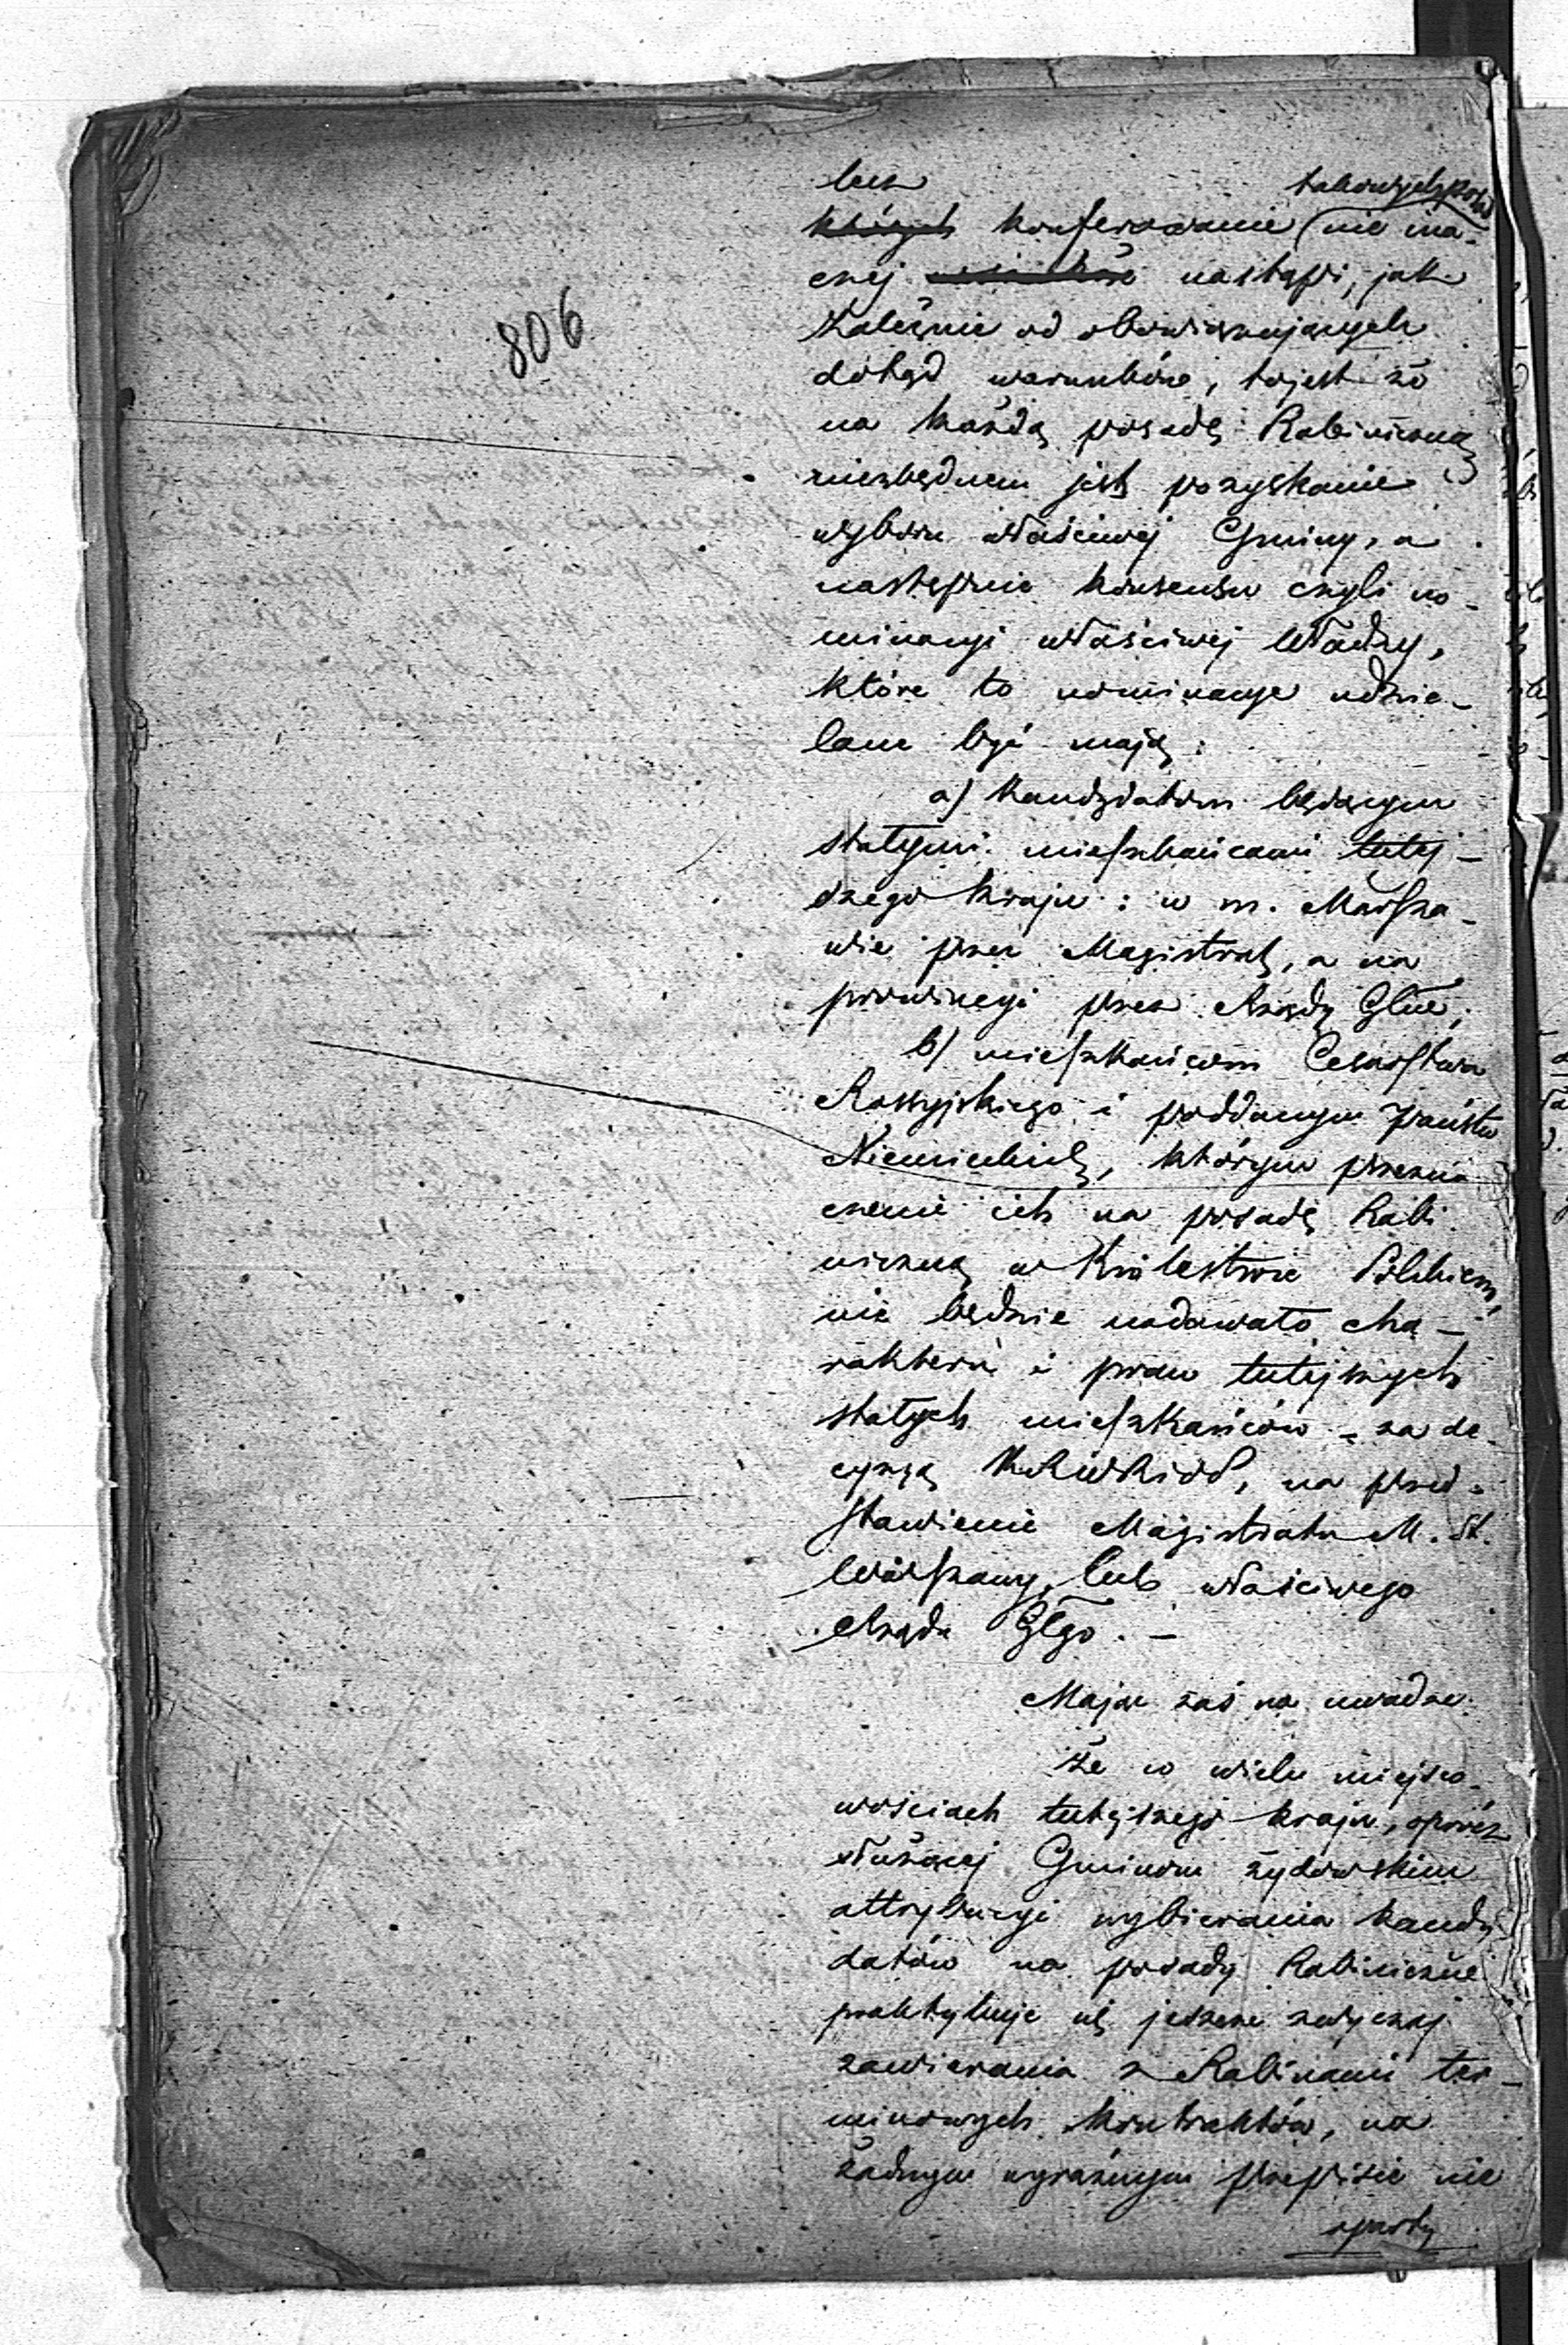 806
lecz takowych posad
których konferowanie nie ina-
czej nastąpi, jak
zależnie od obowiązujących
dotąd warunków, to jest że
na każdą posadę Rabiniczną
niezbędnem jest pozyskanie
wyboru właściwej Gminy, a
następnie konsensu czyli no-
minacyi właściwej Władzy,
które to nominacye udzie-
lane być mają:
a) kandydatom będącym
stałymi mieszkańcami tutej-
szego kraju: w m. Warsza-
wie przez Magistrat, a na
prowincyi przez Rządy Glne;
b) mieszkańcom Cesarstwa
Rossyjskiego i poddanym państw
Niemieckich, którym przezna
czenie ich na posadę Rabi
niczną w Królestwie Polskiem,
nie będzie nadawało cha-
rakteru i praw tutejszych
stałych mieszkańców - za de-
cyzyą na przed-
stawienie Magistratu M. St.
Warszawy, lub właściwego
Rządu Glgo. -
Mając zaś na uwadze
że w wielu miejsco-
wościach tutejszego kraju, oprócz
służącej Gminom żydowskim
attrybucyi wybierania kandy
datów na posady Rabiniczne
praktykuje się jeszcze zwyczaj
zawierania z Rabinami ter-
minowych kontraktów, na
żadnym wyraźnym przepisie nie
oparty